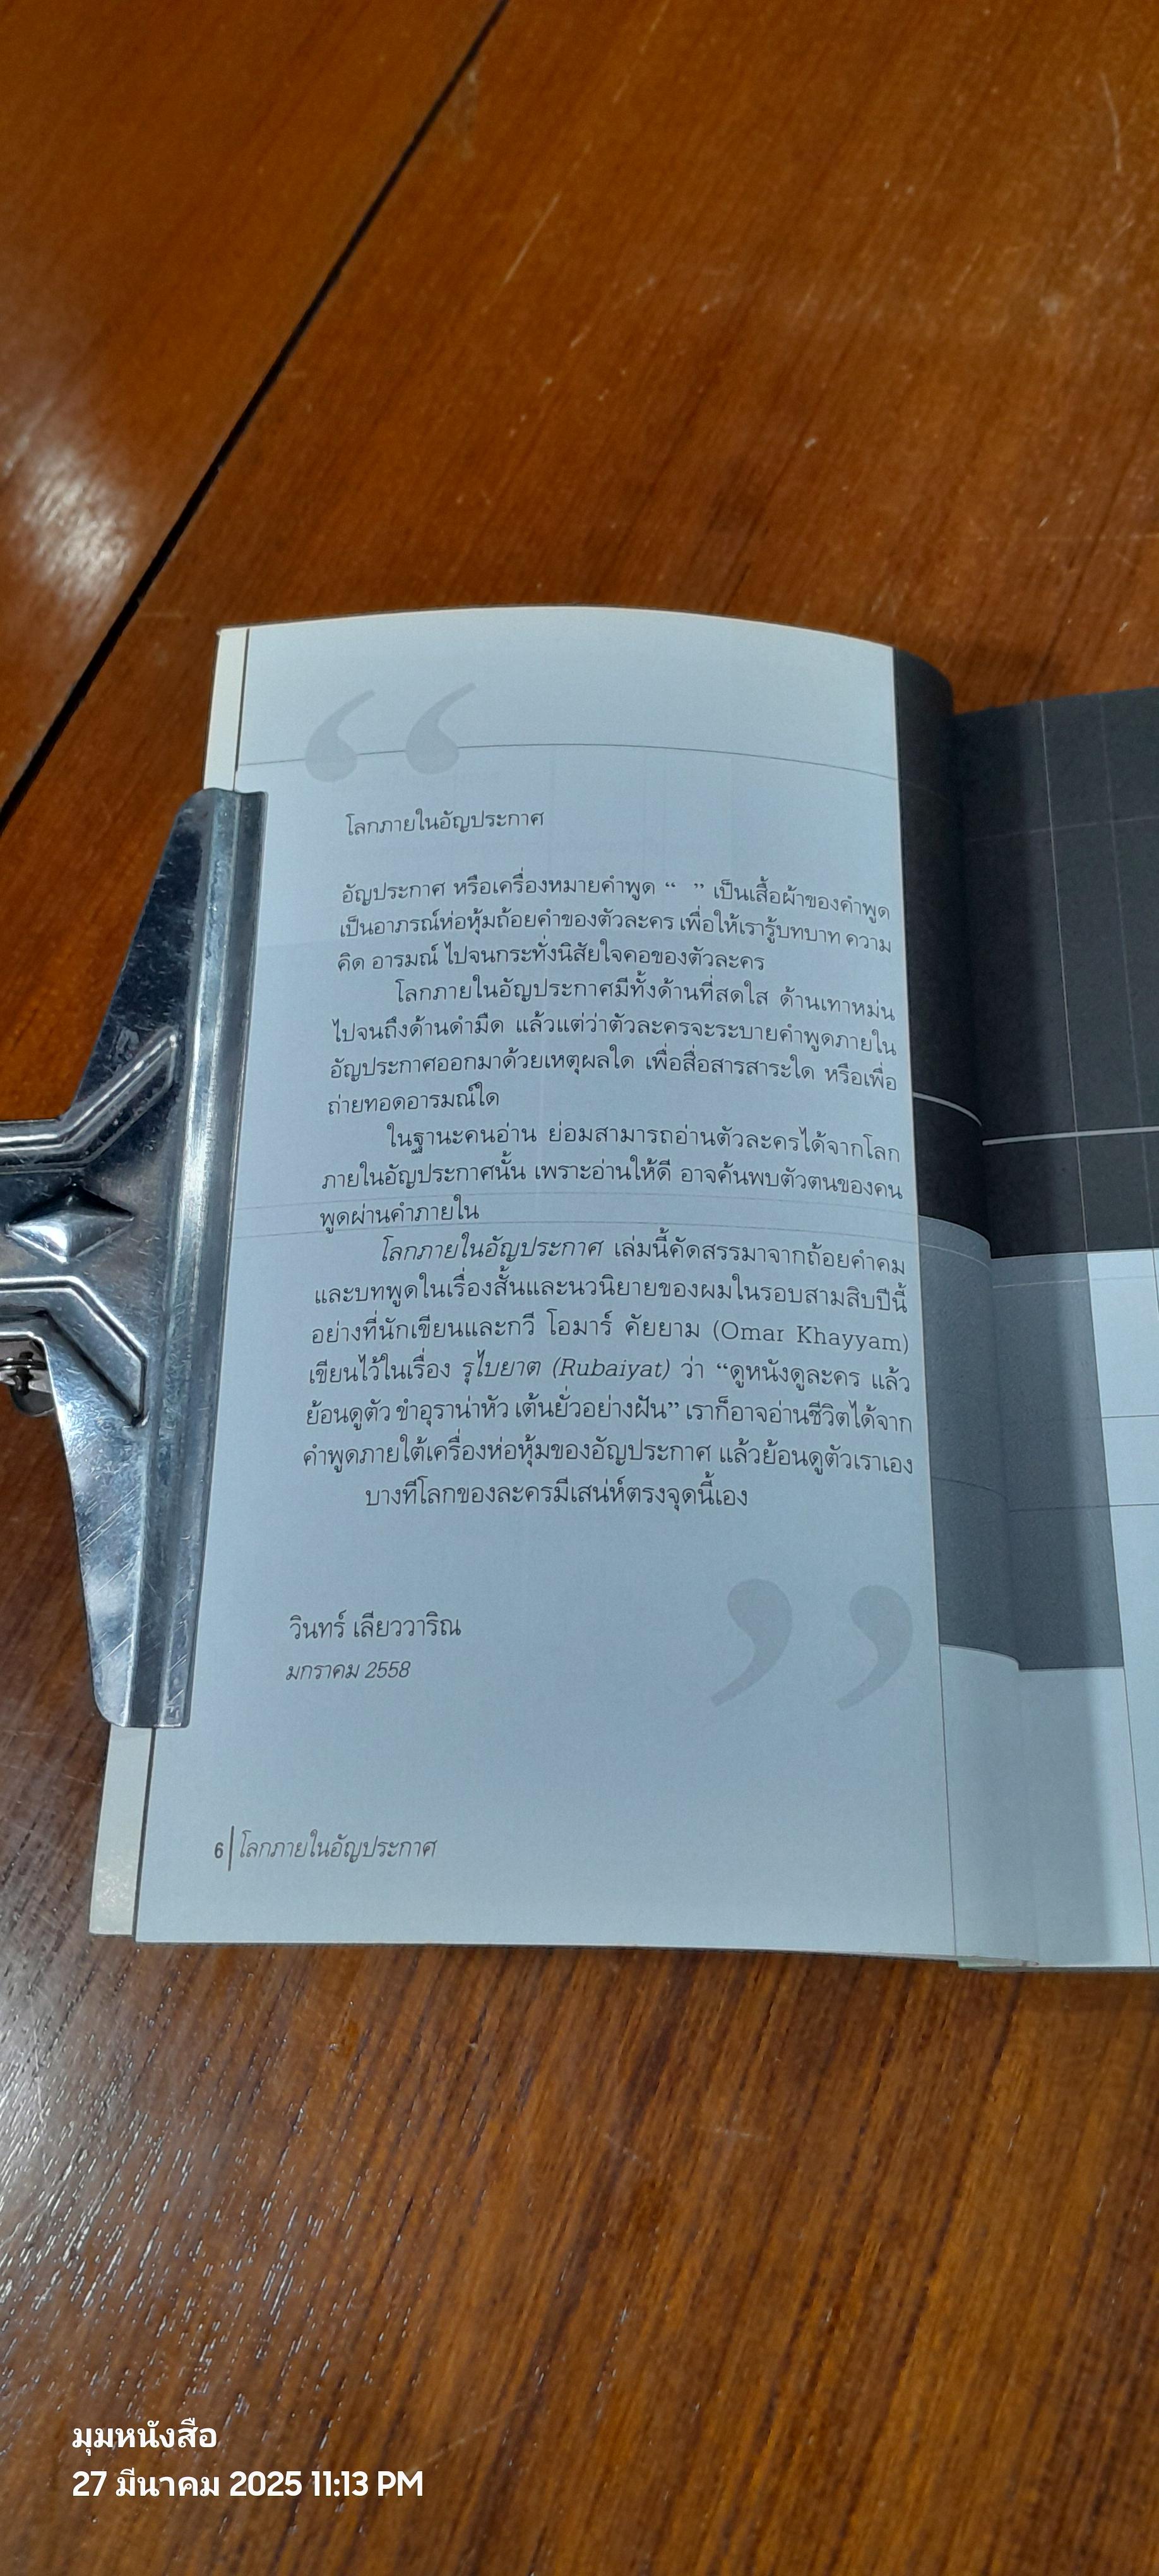 โลกภายในอัญประกาศ
อัญประกาศ หรือเครื่องหมายคำพูด “ ” เป็นเสื้อผ้าของคำพูด
เป็นอาภรณ์ห่อหุ้มถ้อยคำของตัวละคร เพื่อให้เรารู้บทบาท ความ
คิด อารมณ์ ไปจนกระทั่งนิสัยใจคอของตัวละคร
โลกภายในอัญประกาศมีทั้งด้านที่สดใส ด้านเทาหม่น
ไปจนถึงด้านดำมืด แล้วแต่ว่าตัวละครจะระบายคำพูดภายใน
อัญประกาศออกมาด้วยเหตุผลใด เพื่อสื่อสารสาระใด หรือเพื่อ
ถ่ายทอดอารมณ์ใด
ในฐานะคนอ่าน ย่อมสามารถอ่านตัวละครได้จากโลก
ภายในอัญประกาศนั้น เพราะอ่านให้ดี อาจค้นพบตัวตนของคน
พูดผ่านคำภายใน
โลกภายในอัญประกาศ เล่มนี้คัดสรรมาจากถ้อยคำคม
และบทพูดในเรื่องสั้นและนวนิยายของผมในรอบสามสิบปีนี้
อย่างที่นักเขียนและกวี โอมาร์ คัยยาม (Omar Khayyam)
เขียนไว้ในเรื่อง รุไบยาต (Rubaiyat) ว่า “ดูหนังดูละคร แล้ว
ย้อนดูตัว ขำอุราน่าหัว เต้นยั่วอย่างฝัน” เราก็อาจอ่านชีวิตได้จาก
คำพูดภายใต้เครื่องห่อหุ้มของอัญประกาศ แล้วย้อนดูตัวเราเอง
บางทีโลกของละครมีเสน่ห์ตรงจุดนี้เอง
วินทร์ เลียววาริณ
มกราคม 2558
6 โลกภายในอัญประกาศ
มุมหนังสือ
27 มีนาคม 2025 11:13 PM